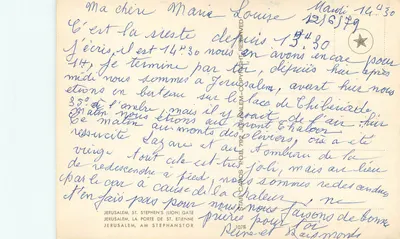 Mardi 14 30
Ma chère Marie Louise 12/6/79
C'est la sieste depuis 13 30
j'écris, il est 14 30 nous en avons encore pour
je termine par toi, depuis hier après
midi nous sommes à Jerusalem, avant hier nous
étions en bateau sur le lac de
35° à l'ombre mais il y avait de l'air hier
matin nous étions au mont
Ce matin au monts des Oliviers, où a été
ressucité Lazare et au tombeau de la
vierge tout cela est très joli, mais au lieu
de redescendre à pied, nous sommes redescendus
par le car à cause de la chaleur, ne
t'en fais pas pour nous nous faisons de bonnes
prières pour toi
Reine et Raymonde
JERUSALEM, ST. STEPHEN'S (LION) GATE
JERUSALEM, LA PORTE DE ST. ETIENNE
JERUSALEM, AM STEPHANSTOR